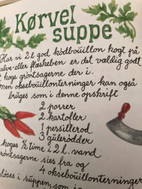 Kørvel
suppe
Har vi 2 l god kødbouillon kogt på
halve- eller flæskeben er det vældig godt
koge grøntsagerne der i.
men oksebouillonterninger kan også
bruges som i denne opskrift
2 porrer
2 kartofler
1 persillerod
3 gulerødder
koges ½ time i 2 l. vand.
grøntsagerne sies fra og
4 oksebouillonterninger
i suppen, som